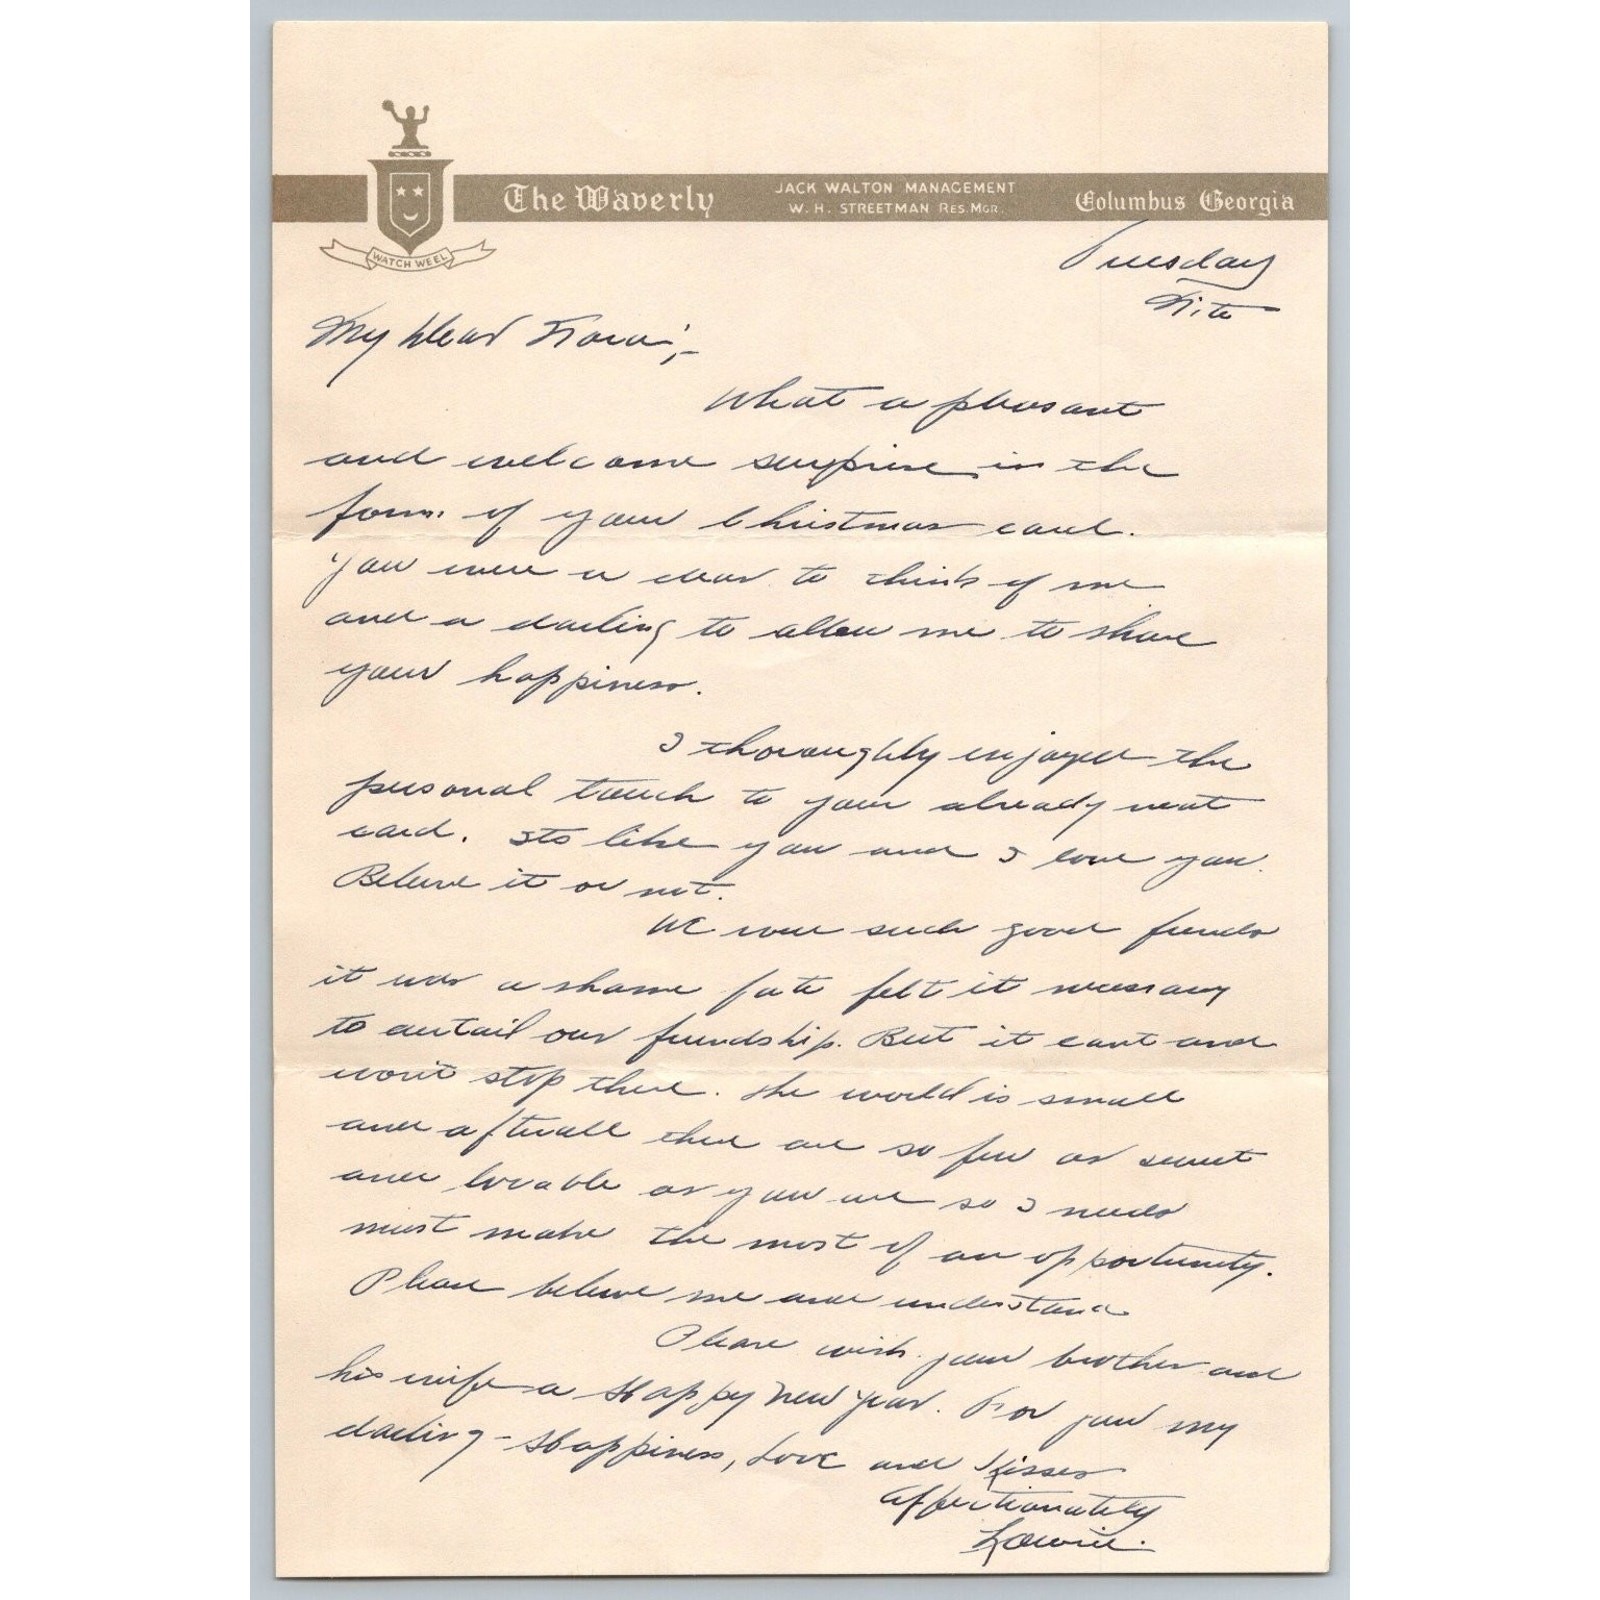 The Waverly
JACK WALTON MANAGEMENT
W. H. STREETMAN RES. MGR.
Columbus Georgia
WATCH WEEL
Tuesday
Nite
My Dear
What a pleasant
and welcome surprise in the
form of your Christmas card.
You were a dear to think of me
and a darling to allow me to share
your happiness.
I thoroughly enjoyed the
personal touch to your already neat
card. Its like you and I love you.
Believe it or not.
We were such good friends
it was a shame fate felt it necessary
to curtail our friendship. But it cant and
won't stop there. The world is small
and afterall there are so few as sweet
and lovable as you are so I needs
must make the most of an opportunity.
Please believe me and understand
Please wish your brother and
his wife a Happy New Year. For you my
darling - Happiness, Love and Kisses
Affectionately